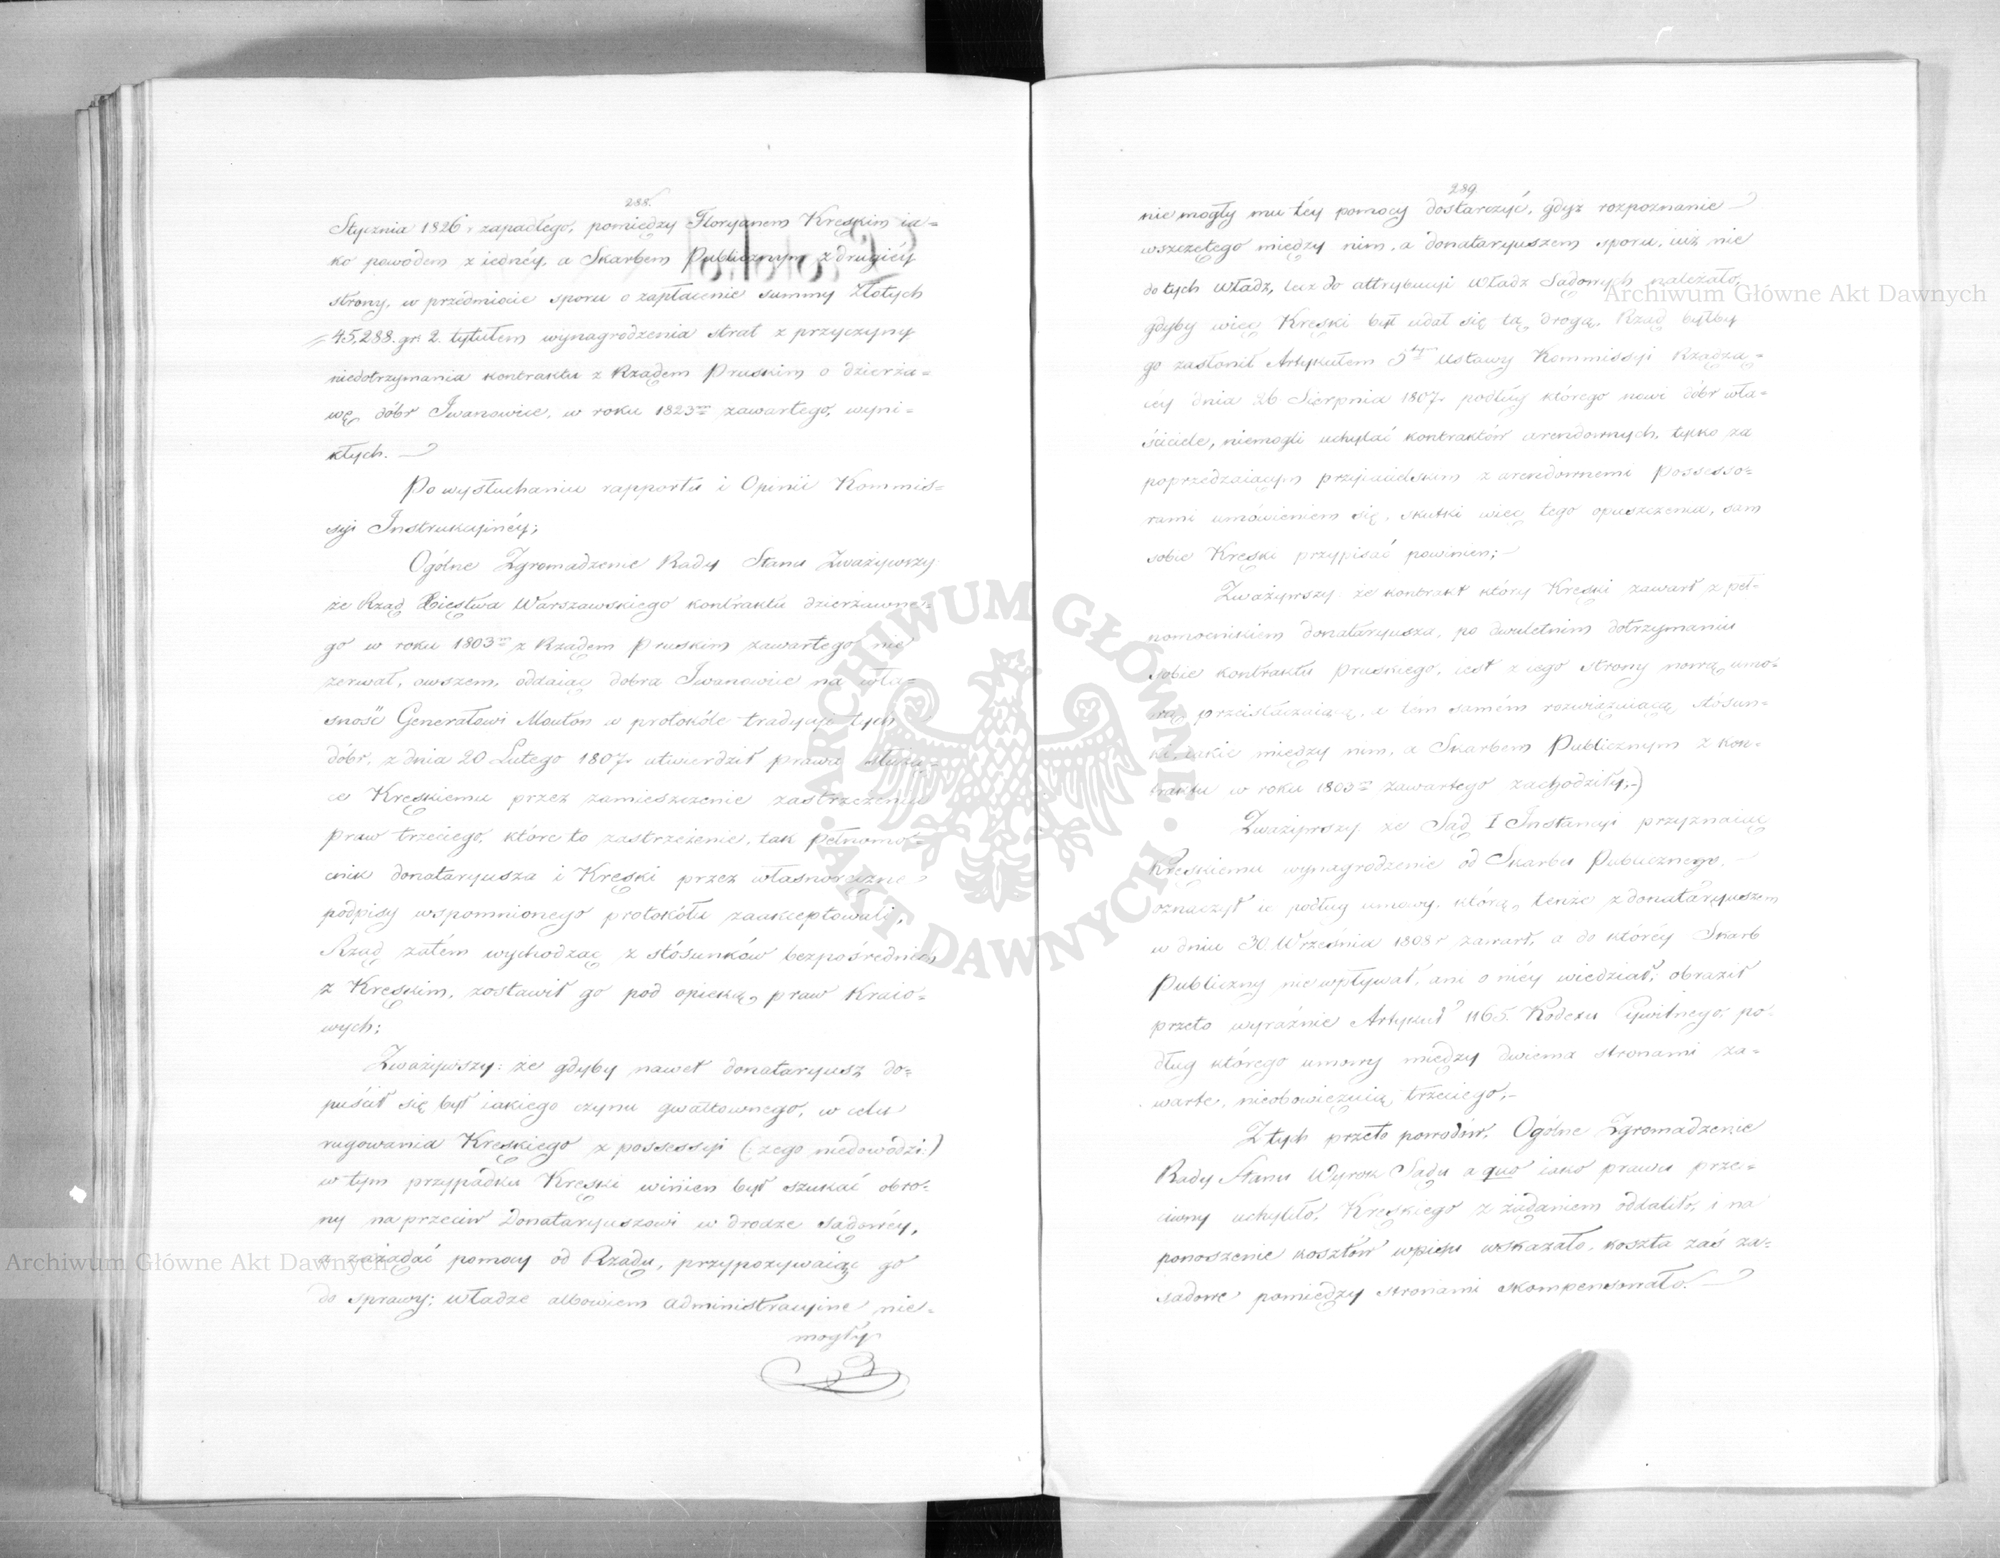 288.
Stycznia 1826 r. zapadłego, pomiędzy Floryanem Kręskim ia=
ko powodem z iednéy, a Skarbem Publicznym z drugiéy
strony, w przedmiocie sporu o zapłacenie summy Złotych
45,288. gr. 2. tytułem wynagrodzenia strat z przyczyny
niedotrzymania kontraktu z Rządem Pruskim o dzierża=
wę dóbr Iwanowice, w roku 1823m zawartego, wyni=
kłych.
Po wysłuchaniu rapportu i Opinii Kommis=
syi Instrukcyinéy;
Ogólne Zgromadzenie Rady Stanu Zważywszy:
że Rząd Xięstwa Warszawskiego kontraktu dzierżawne=
go w roku 1803m z Rządem Pruskim zawartego nie
zerwał, owszem, oddaiąc dobra Iwanowice na wła=
sność Generałowi Mouton w protokóle tradycyi tych
dóbr, z dnia 20 Lutego 1807 r utwierdził prawa służą=
ce Kręskiemu przez zamieszczenie zastrzeżenia
praw trzeciego, które to zastrzeżenie, tak Pełnomo=
cnik donataryusza i Kręski przez własnoręczne
podpisy wspomnionego protokółu zaakceptowali,
Rząd zatém wychodząc z stósunków bezpośrednich
z Kręskim, zostawił go pod opieką praw Kraio=
wych;
Zważywszy: że gdyby nawet donataryusz do=
puścił się był iakiego czynu gwałtownego, w celu
rugowania Kręskiego z possessyi (: czego niedowodzi :)
w tym przypadku Kręski winien był szukać obro=
ny naprzeciw Donataryuszowi w drodze sądowéy,
a zażądać pomocy od Rządu, przypozywaiąc go
do sprawy; władze albowiem administracyine nie=
mogły
289.
nie mogły mu téy pomocy dostarczyć, gdyż rozpoznanie
wszczętego między nim, a donataryuszem sporu, iuż nie
do tych władz, lecz do attrybucyi Władz Sądowych należało,
gdyby więc Kręski był udał się tą drogą, Rząd byłby
go zasłonił Artykułem 5tym Ustawy Kommissyi Rządzą=
céy dnia 26 Sierpnia 1807 r podług którego nowi dóbr wła=
ściciele, niemogli uchylać kontraktów arendownych, tylko za
poprzedzaiącym przyiacielskim z arendownemi Possesso=
rami umówieniem się, skutki więc tego opuszczenia, sam
sobie Kręski przypisać powinien;
Zważywszy: że kontrakt który Kręski zawarł z peł=
nomocnikiem donataryusza, po dwuletnim dotrzymaniu
sobie kontraktu Pruskiego, iest z iego strony nową umo=
wą przeistaczaiącą, a tém samém rozwiązuiącą stósun=
ki, iakie między nim, a Skarbem Publicznym z kon=
traktu w roku 1803m zawartego zachodziły;
Zważywszy: że Sąd I Instancyi przyznaiąc
Kręskiemu wynagrodzenie od Skarbu Publicznego,
oznaczył ie podług umowy, którą tenże z donataryuszem
w dniu 30 Września 1808 r zawarł, a do któréy Skarb
Publiczny nie wpływał, ani o niéy wiedział, obraził
przeto wyraźnie Artykuł 1165. Kodexu Cywilnego, po=
dług którego umowy między dwiema stronami za=
warte, nieobowięzuią trzeciego,
Z tych przeto powodów, Ogólne Zgromadzenie
Rady Stanu Wyrok Sądu a quo iako prawu prze=
ciwny uchyliło, Kręskiego z żądaniem oddaliło, i na
ponoszenie kosztów wpisu wskazało, koszta zaś są=
dowe pomiędzy stronami skompensowało.
Archiwum Główne Akt Dawnych
Archiwum Główne Akt Dawnych
ARCHIWUM GŁÓWNE
AKT DAWNYCH